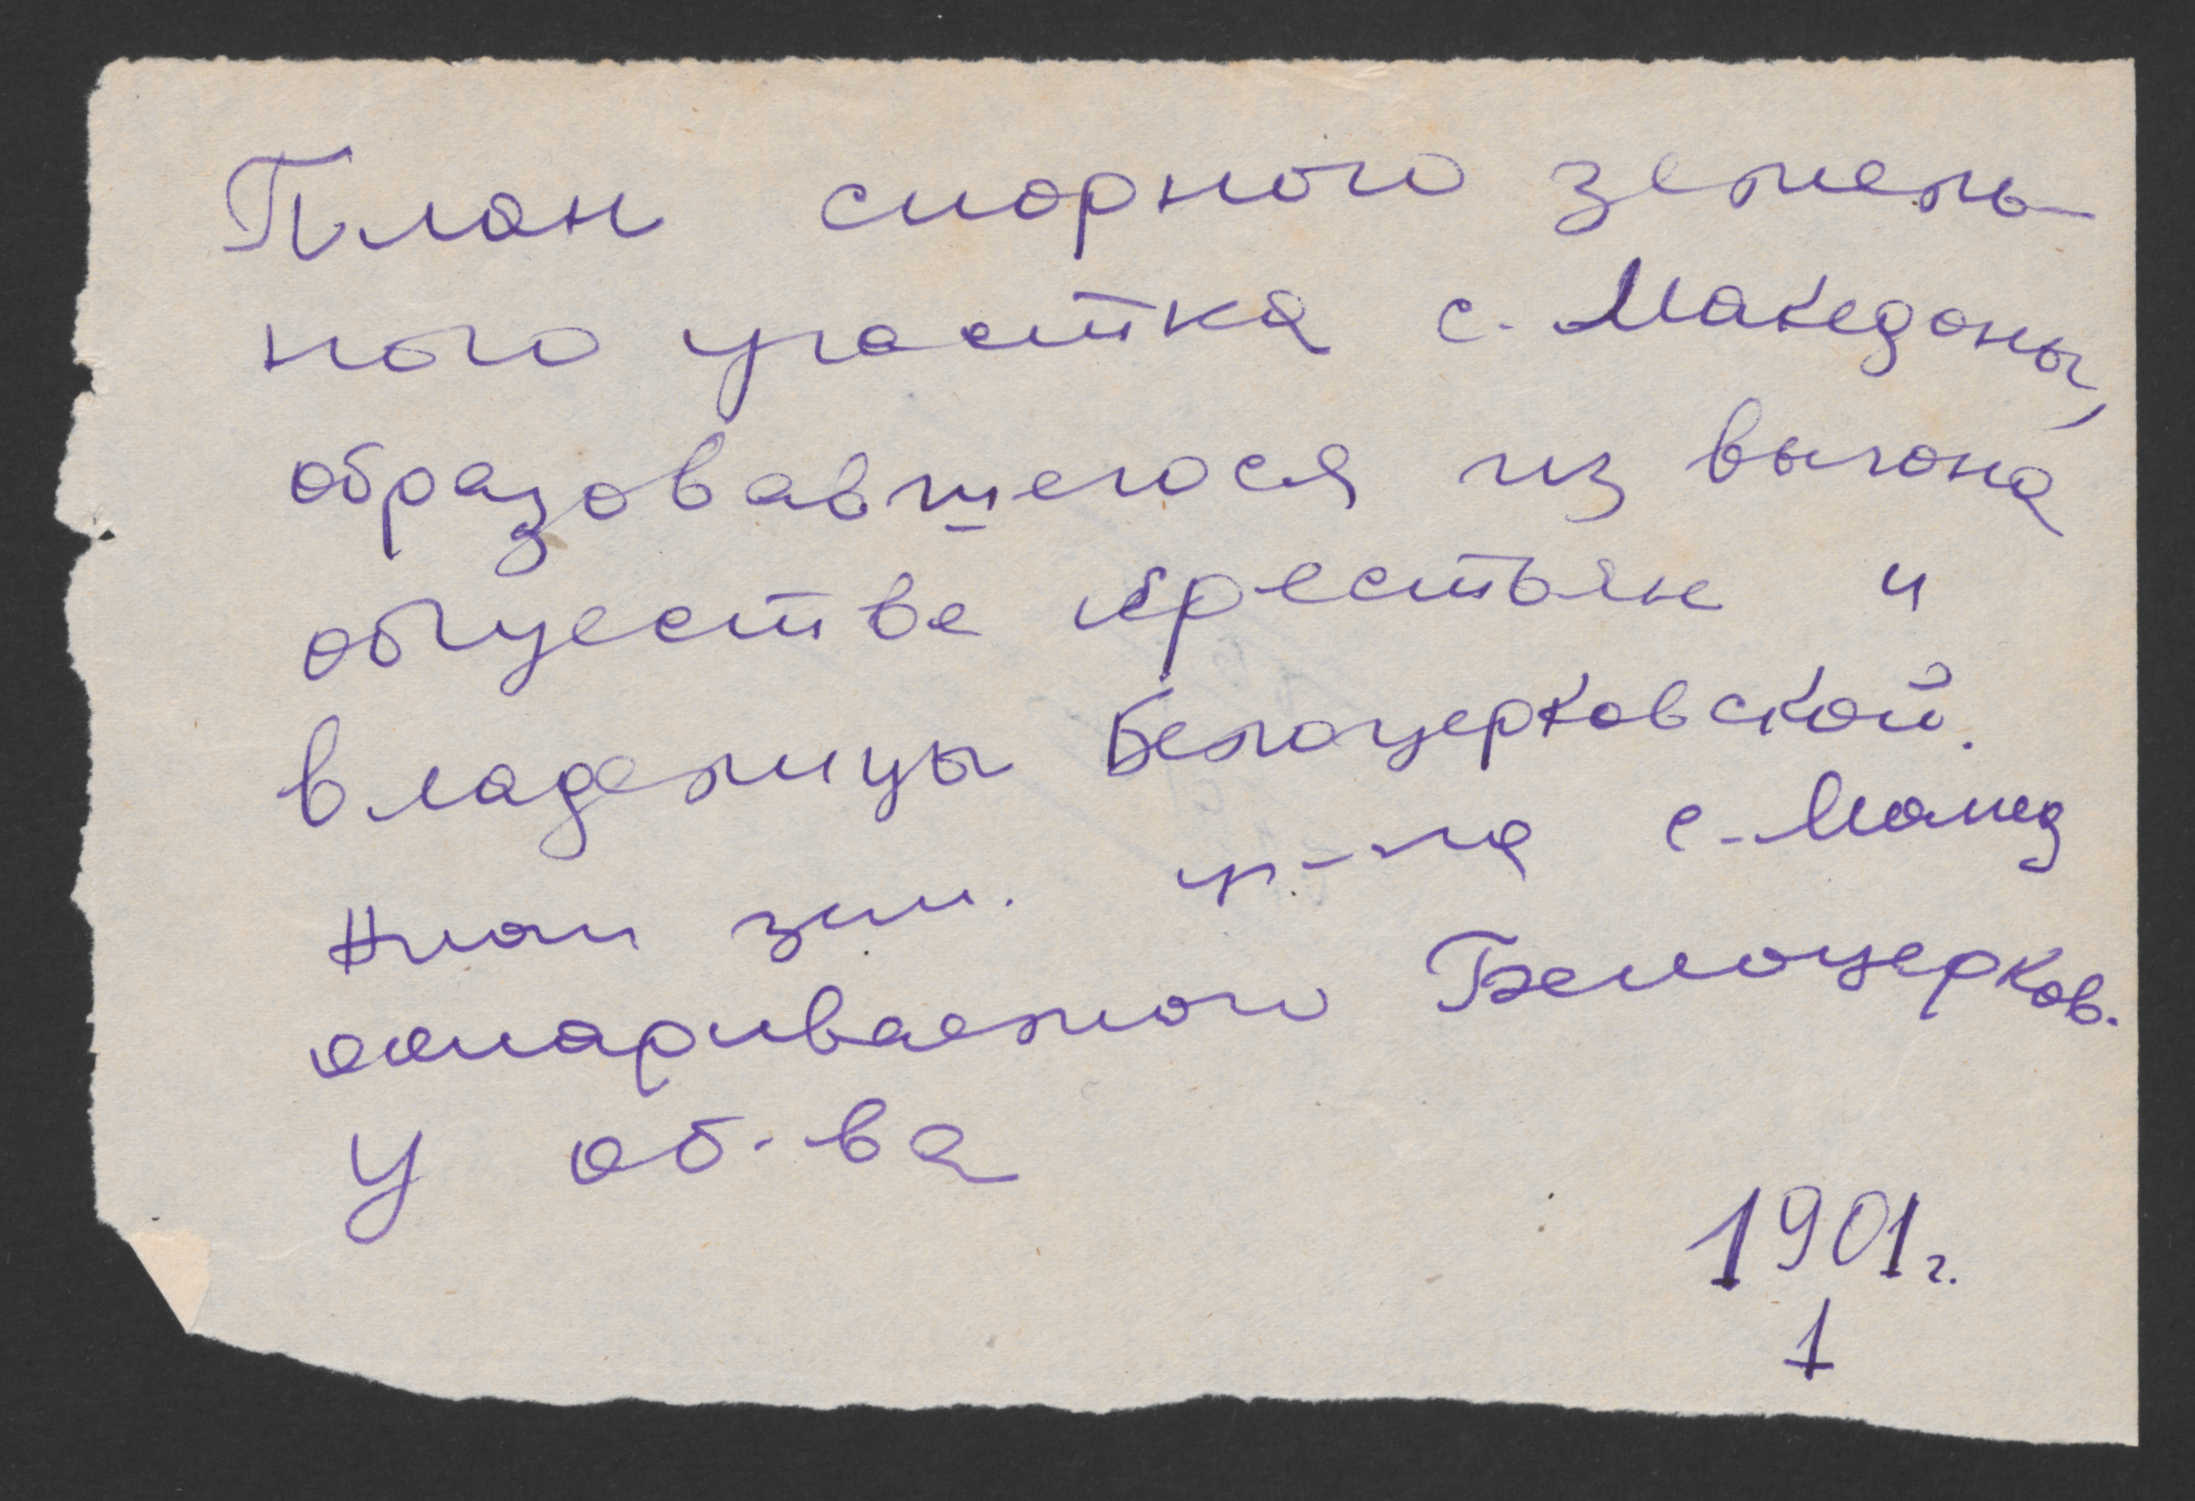 План спорного земель-
ного участка с. Македоны,
образовавшегося из выгона
общества крестьян и
владелицы Белоцерковской.
план зем. уч-ка с.
оспариваемого Белоцерков.
у об-ва
1901 г.
1